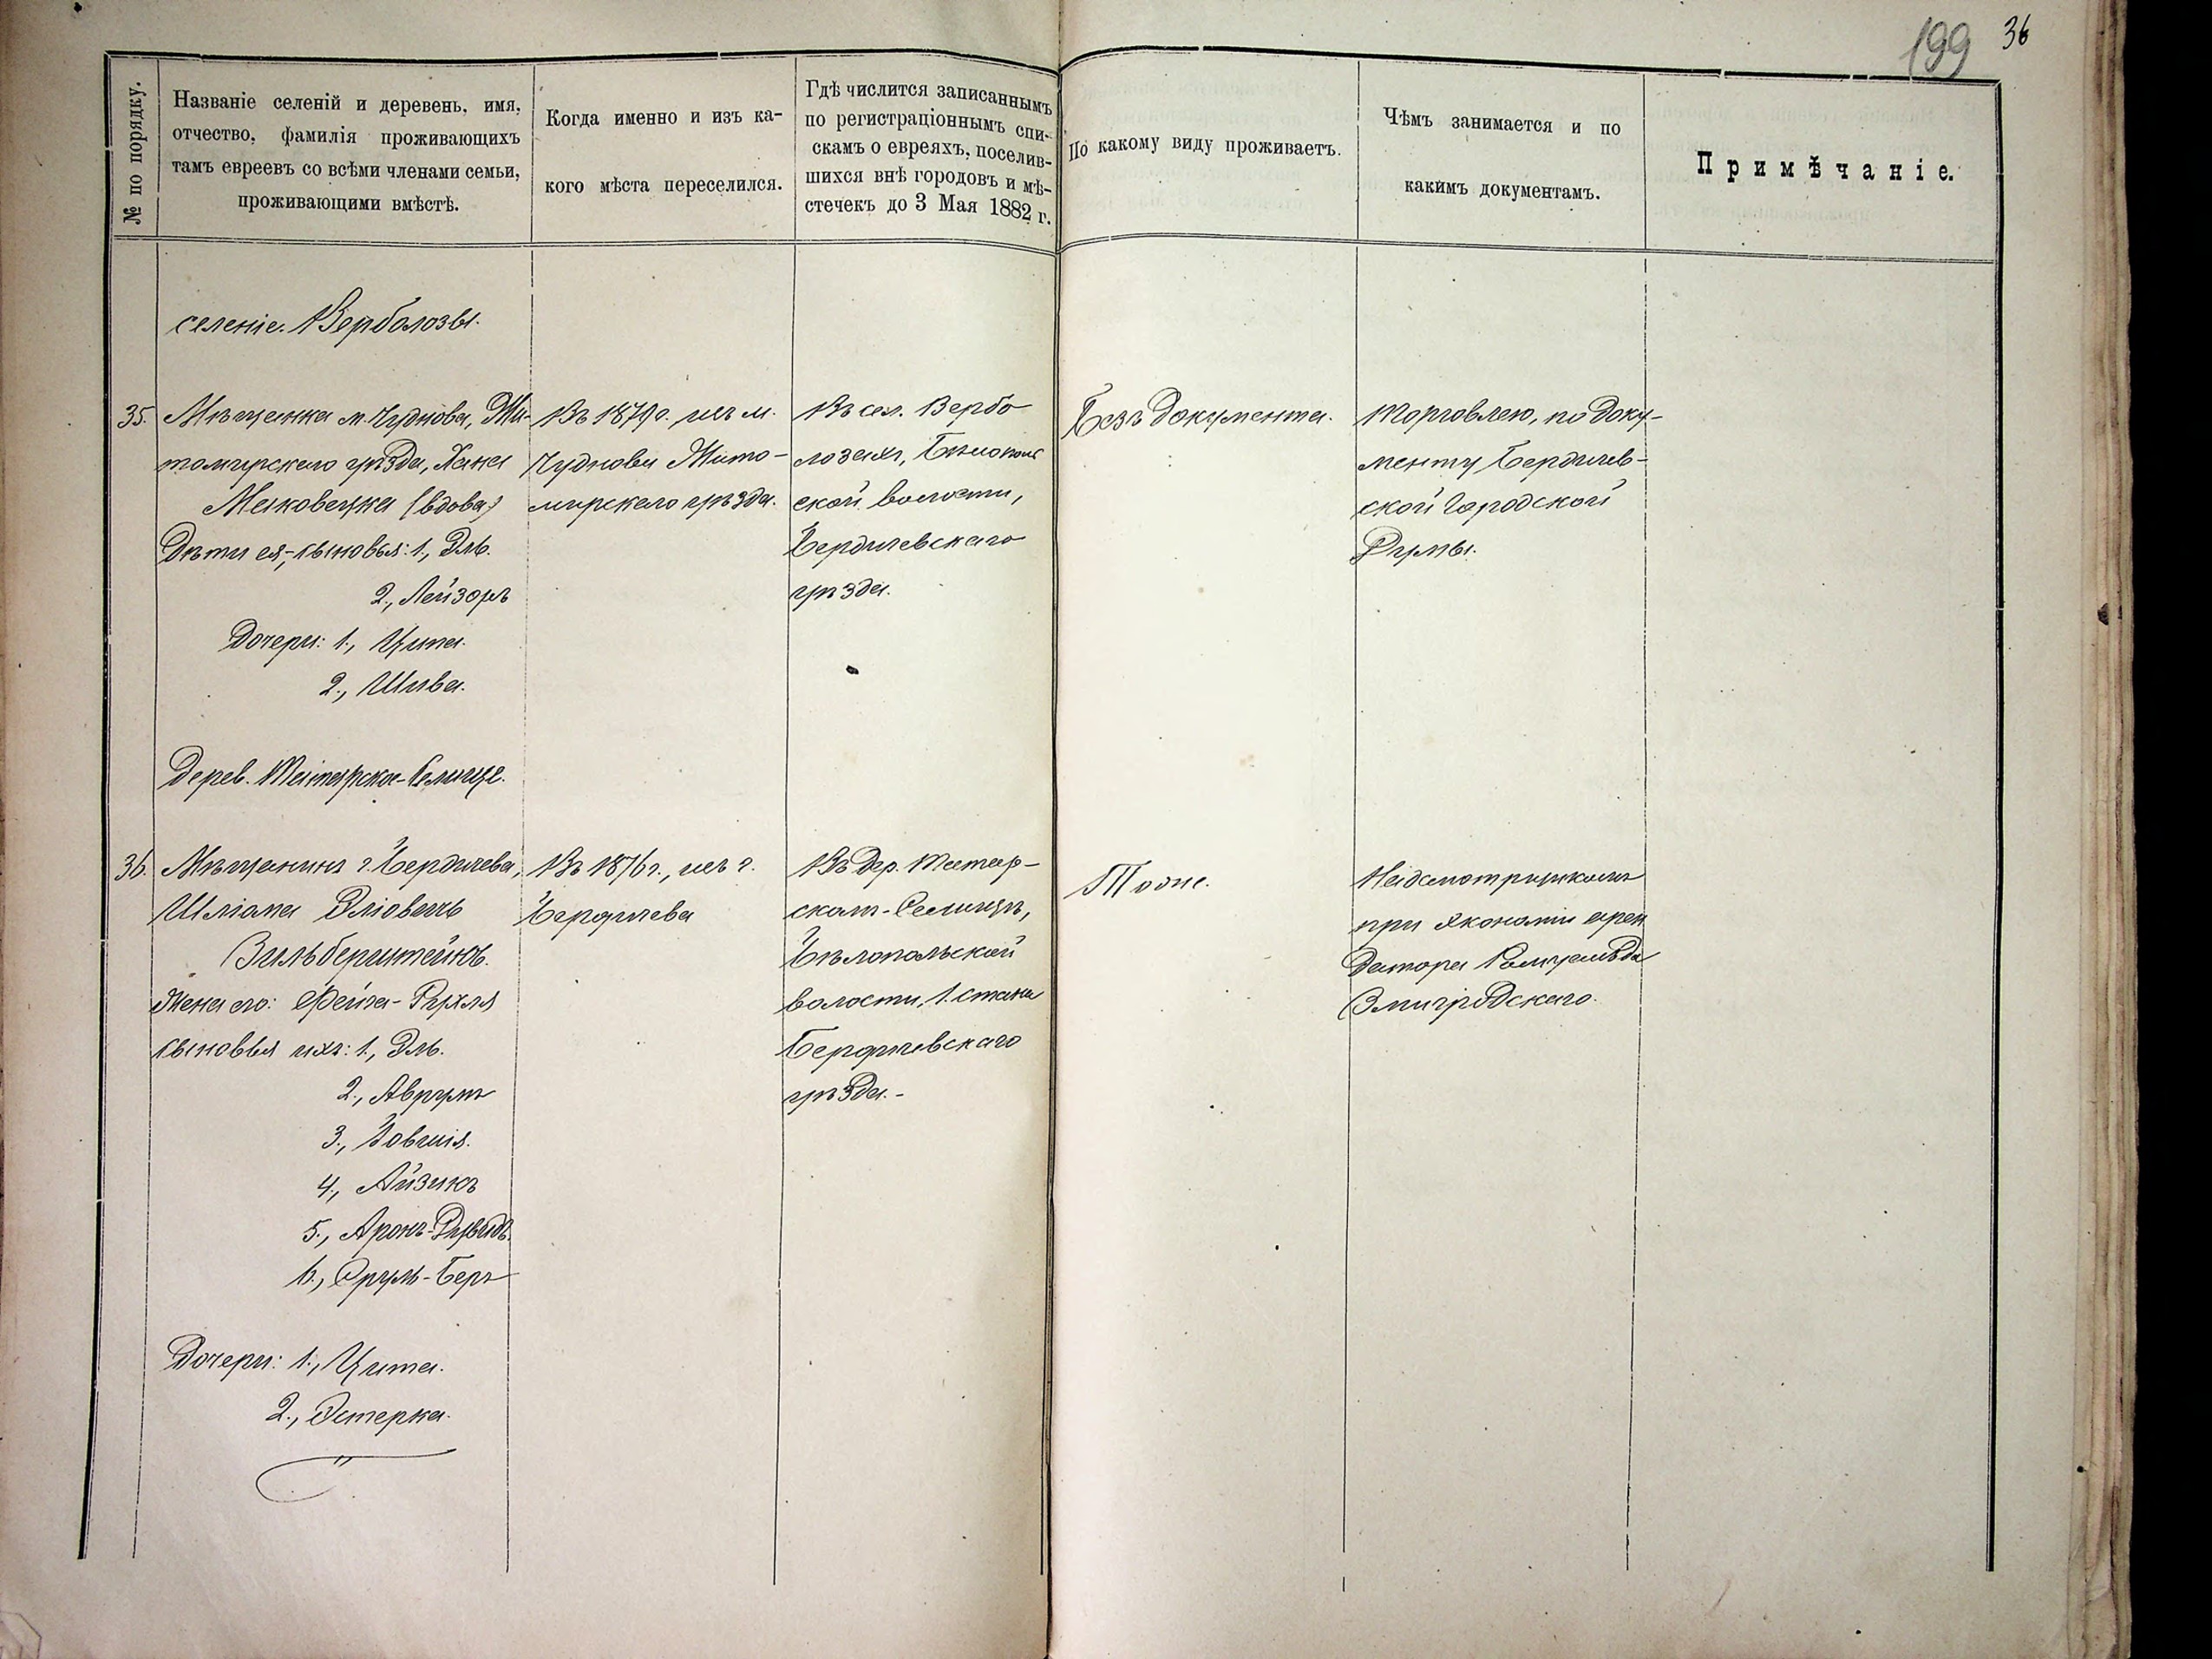 199 36
№ по порядку.
Названіе селеній и деревень, имя,
отчество, фамилія проживающихъ
тамъ евреевъ со всѣми членами семьи,
проживающими вмѣстѣ.
Когда именно и изъ ка-
кого мѣста переселился.
Гдѣ числится записаннымъ
по регистраціоннымъ спи-
скамъ о евреяхъ, поселив-
шихся внѣ городовъ и мѣ-
стечекъ до 3 Мая 1882 г.
По какому виду проживаетъ.
Чѣмъ занимается и по
какимъ документамъ.
Примѣчаніе.
селеніе. Верболозы.
35.
Мѣщанка м. Чуднова, Жи-
томирскаго уѣзда, Хана
Маковецка (вдова)
Дѣти ея,-сыновья: 1., Эль.
2., Лейзоръ
Дочери: 1., Ципа.
2., Шива.
Въ 1879 г. изъ м.
Чуднова Жито-
мирскаго уѣзда.
Въ сел. Вербо
лозахъ, Бѣлополь
ской волости,
Бердичевскаго
уѣзда.
Безъ документа.
Торговлею, по доку-
менту Бердичев-
ской Городской
Думы.
Дерев. Татарское-Селище.
36.
Мѣщанинъ г. Бердичева,
Шліома Эліовичъ
Зильберштейнъ.
Жена его: Фейга-Рухля
сыновья ихъ: 1., Эль.
2., Аврумъ
3., Іовшія.
4., Айзикъ
5., Аронъ-Дувидъ.
6., Сруль-Беръ
Дочери: 1., Цита.
2., Эстерка.
Въ 1876 г., изъ г.
Бердичева
Въ дер. Татар-
скомъ-Селищѣ,
Бѣлопольской
волости, 1. стана
Бердичевскаго
уѣзда.-
Тоже.
Надсмотрщикомъ
при экономіи арен
датора Ромуальда
Змигродскаго.